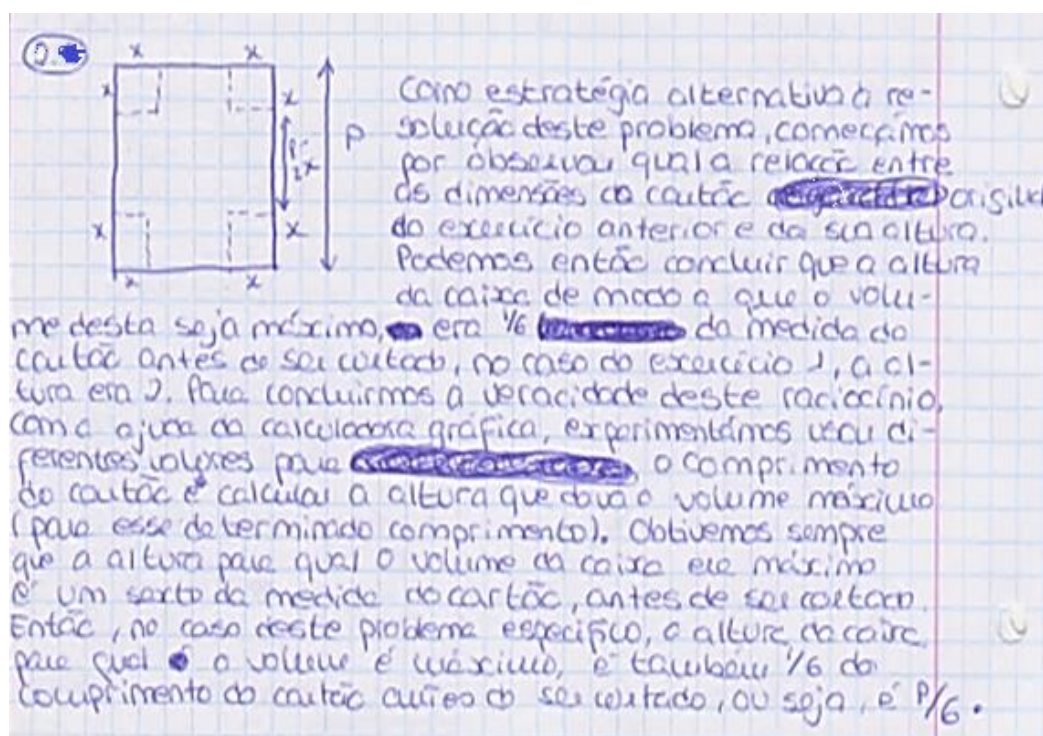 2.
x x
x x
P
P-
2x
x x
x x
Como estratégia alternativa à re-
solução deste problema, começámos
por observar qual a relação entre
as dimensões do cartão original
do exercício anterior e da sua altura.
Podemos então concluir que a altura
da caixa de modo a que o volu-
me desta seja máximo, era 1/6 da medida do
cartão antes de ser cortado, no caso do exercício 1, a al-
tura era 2. Para concluirmos a veracidade deste raciocínio,
com a ajuda da calculadora gráfica, experimentámos usar di-
ferentes valores para o comprimento
do cartão e calcular a altura que dava o volume máximo
(para esse determinado comprimento). Obtivemos sempre
que a altura para qual o volume da caixa era máximo
é um sexto da medida do cartão, antes de ser cortado.
Então, no caso deste problema específico, a altura da caixa,
para qual o volume é máximo, é também 1/6 do
comprimento do cartão antes de ser cortado, ou seja, é P/6.